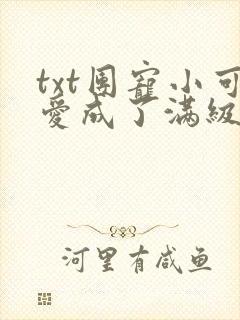 txt团寵小可
愛成了满級
河里有咸鱼